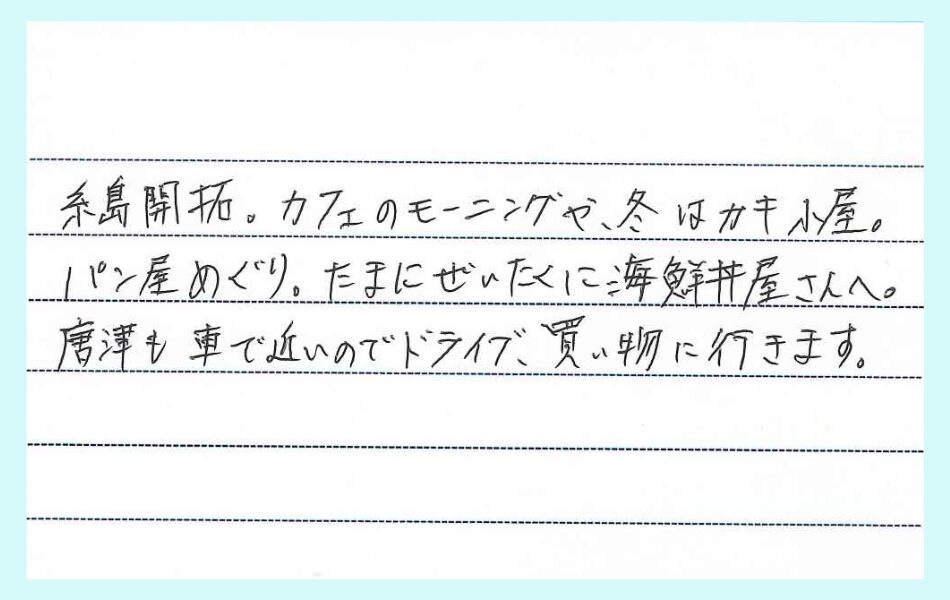 糸島開拓。カフェのモーニングや、冬はカキ小屋。
パン屋めぐり。たまにぜいたくに海鮮丼屋さんへ。
唐津も車で近いのでドライブ、買い物に行きます。